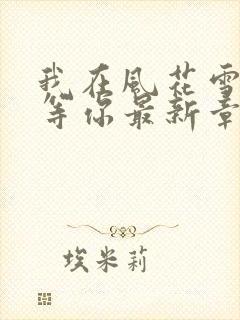 我在風花雪
等你最新章
埃米莉